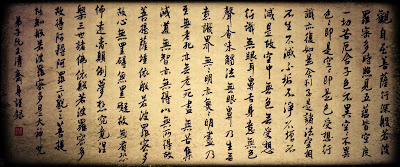 觀自在菩薩行深般若波
羅蜜多時照見五蘊皆空度
一切苦厄舍子色不異空空不異
色色即是空空即是色受想行
識亦復如是舍利子是諸法空相
不生不滅不垢不淨不增不
減是故空中無色無受想
行識無眼耳鼻舌身意無色
聲香味觸法無眼界乃至無
意識界無無明亦無無明盡乃
至無老死亦無老死盡無苦集
滅道無智亦無得以無所得故
菩提薩埵依般若波羅蜜多
故心無罣礙無罣礙故無有恐
怖遠離顛倒夢想究竟涅
槃三世諸佛依般若波羅蜜多
故得阿耨多羅三藐三菩提
故知般若波羅蜜多是大神咒
弟子清齋身謹錄